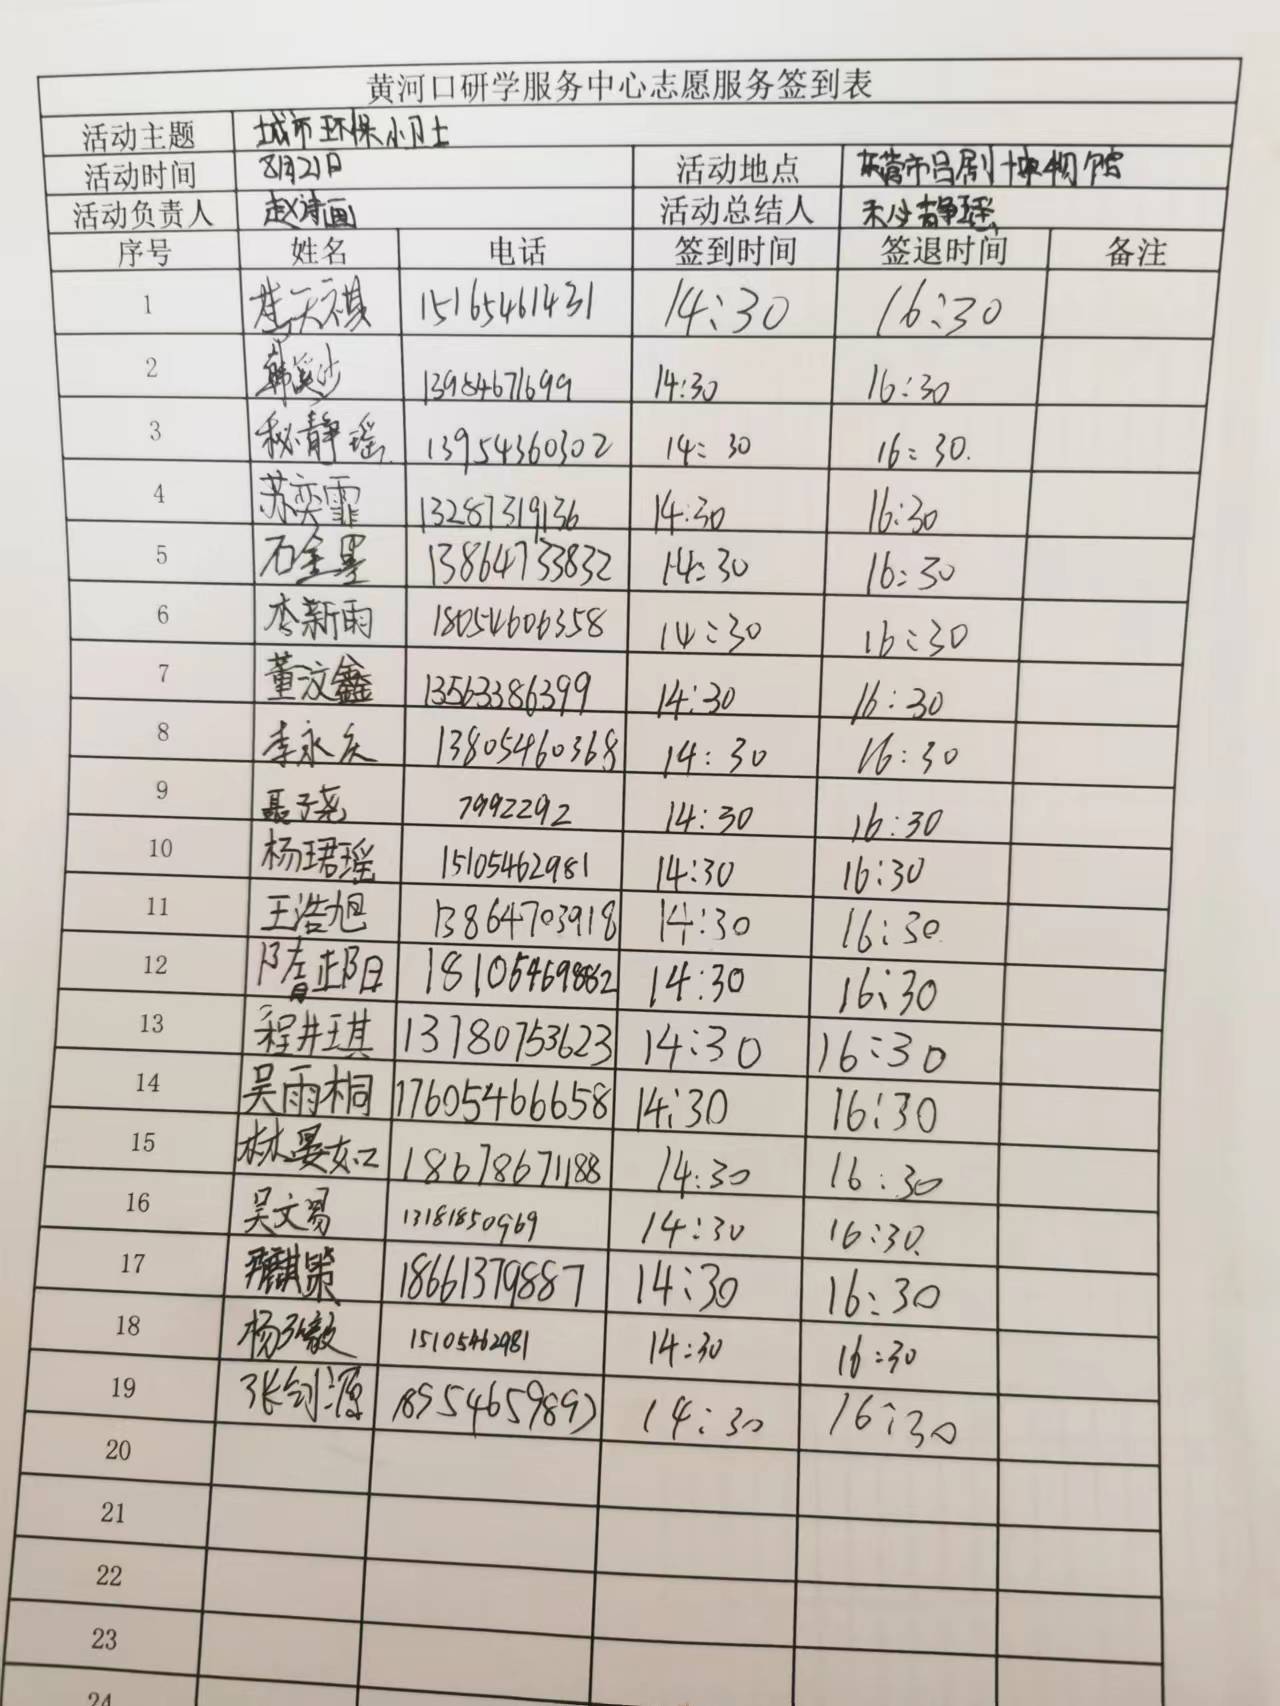 黄河口研学服务中心志愿服务签到表
活动主题 城市环保小卫士
活动时间 8月21日 活动地点 东营市吕剧博物馆
活动负责人 赵诗画 活动总结人 秘静瑶
序号 姓名 电话 签到时间 签退时间 备注
1 天祺 15165461431 14:30 16:30
2 13984671699 14:30 16:30
3 秘静瑶 13954360302 14:30 16:30.
4 苏奕霏 13287319136 14:30 16:30
5 石金墨 13864733832 14:30 16:30
6 李新雨 18054606358 14:30 16:30
7 董汶鑫 13563386399 14:30 16:30
8 李永庆 13805460368 14:30 16:30
9 聂子尧 7992292 14:30 16:30
10 杨珺瑶 15105462981 14:30 16:30
11 王浩旭 13864703918 14:30 16:30
12 隋正阳 18105469882 14:30 16:30
13 程井琪 13780753623 14:30 16:30
14 吴雨桐 17605466658 14:30 16:30
15 林晏如 18678671188 14:30 16:30
16 吴文易 13181850969 14:30 16:30.
17 18661379887 14:30 16:30
18 杨 15105462981 14:30 16:30
19 张剑源 14:30 16:30
20
21
22
23
24